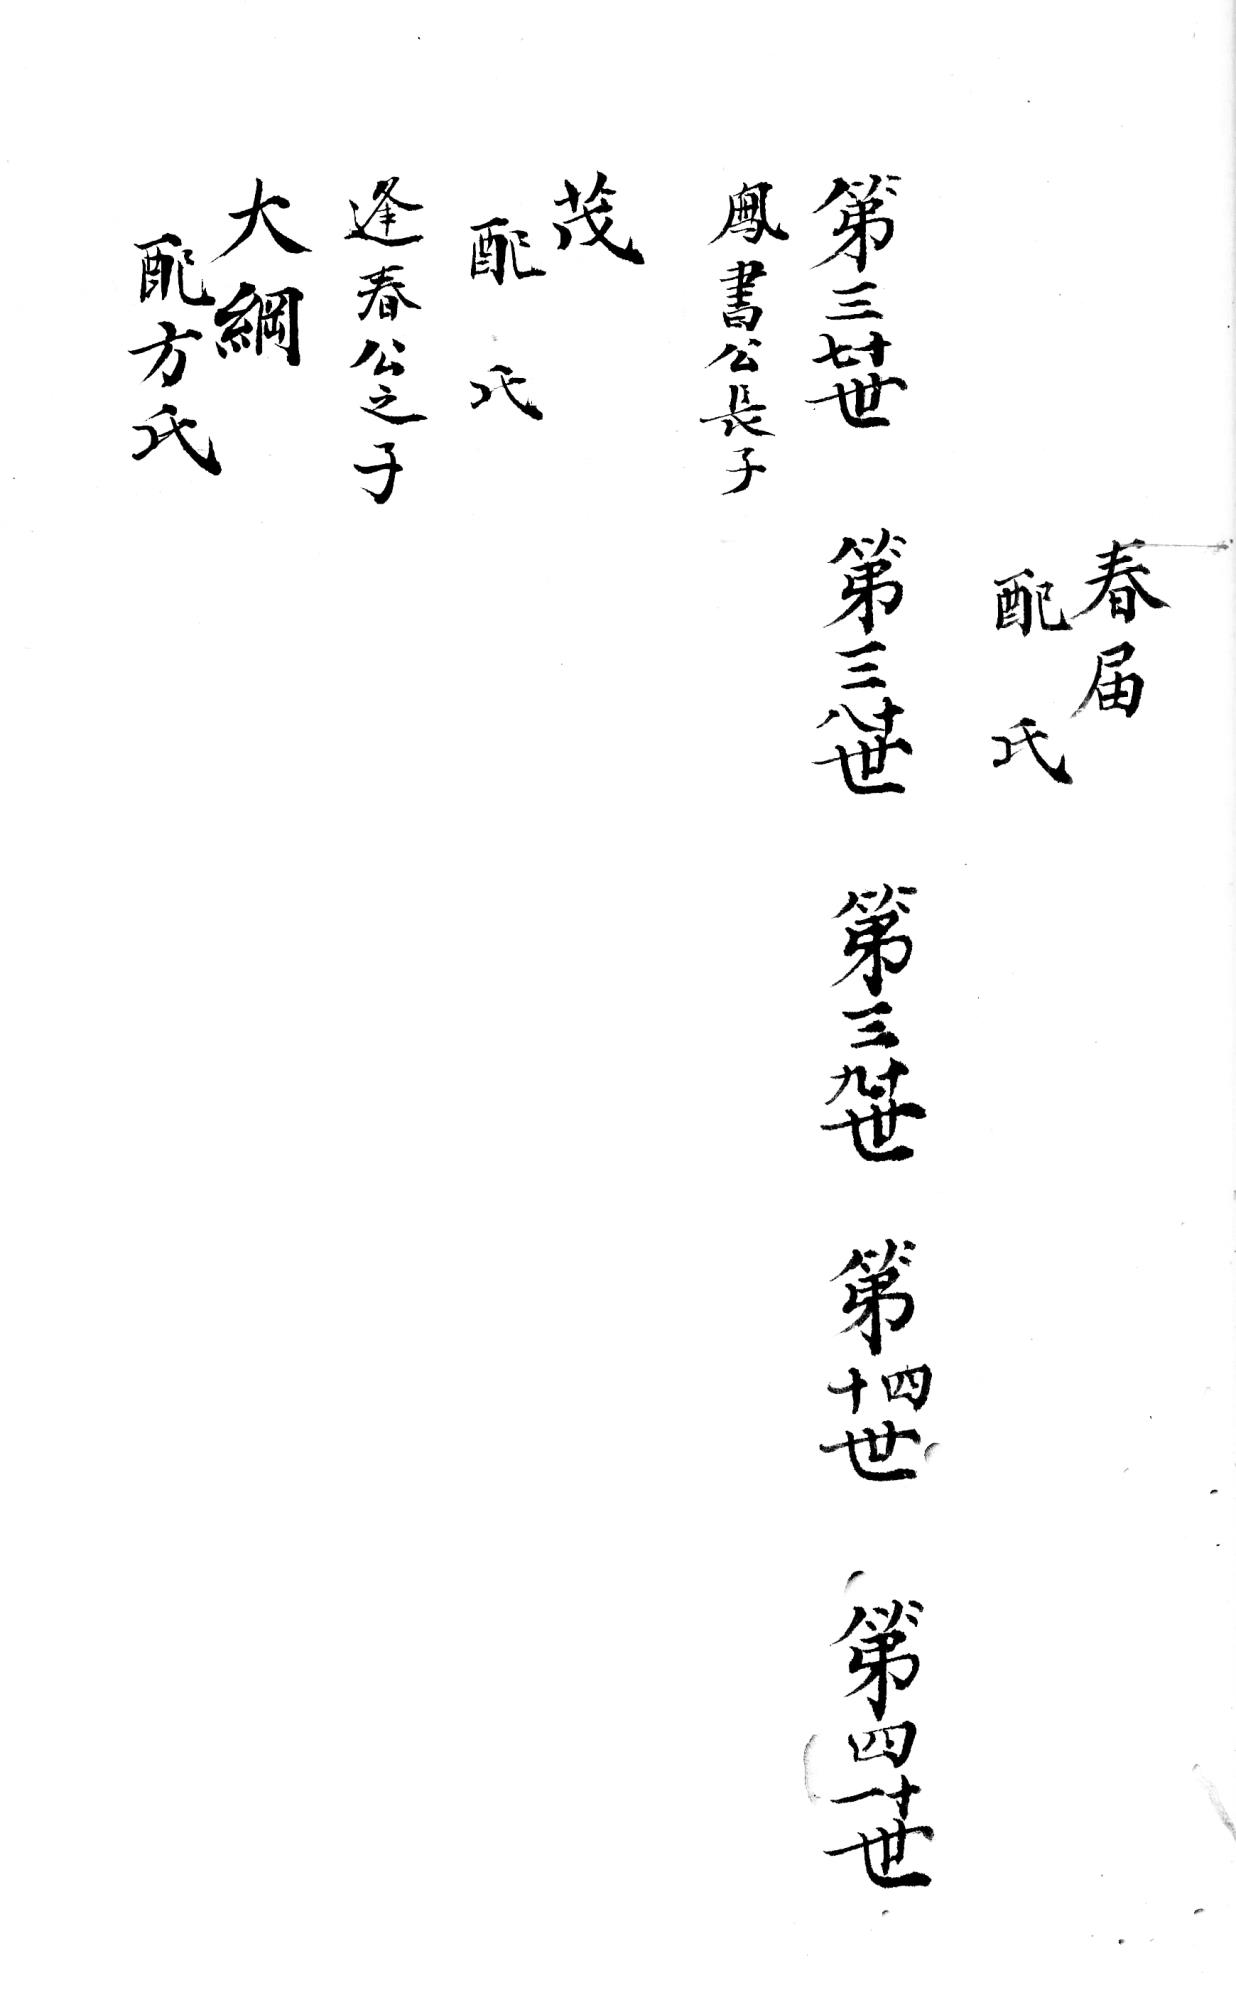 春届
配 氏
第三十七世
第三十八世
第三十九世
第四十世
第四十一世
鳳書公長子
茂
配 氏
逢春公之子
大綱
配方氏